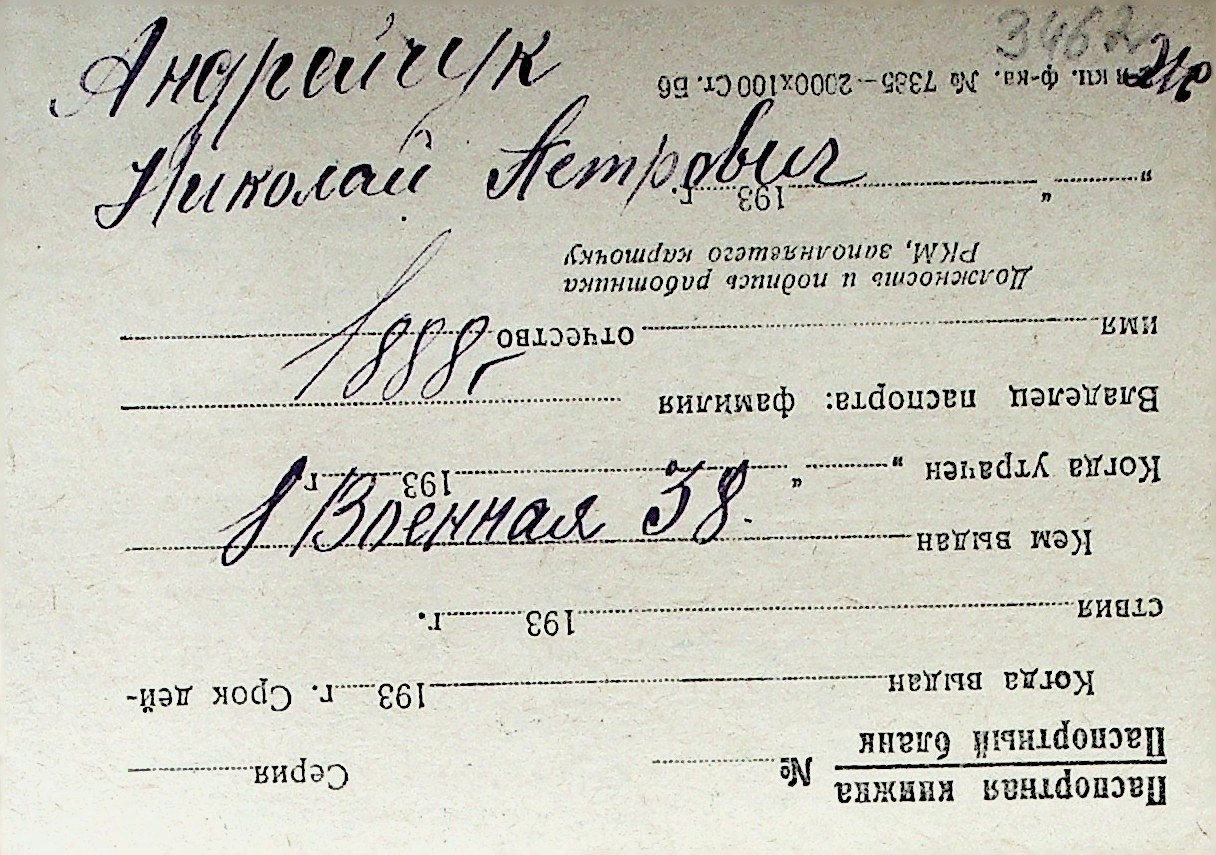 Андрейчук
3462
Николай Петрович
1888
1 Военная 38.
Паспортная книжка
Паспортный бланк
№ Серия
Когда выдан 193 г. Срок дей-
ствия 193 г.
Кем выдан
Когда утрачен „ “ 193 г.
Владелец паспорта: фамилия
имя отчество
Должность и подпись работника
РКМ, заполнявшего карточку
„ “ 193 г.
ф-ка. № 7385—2000x100 Ст. Б6